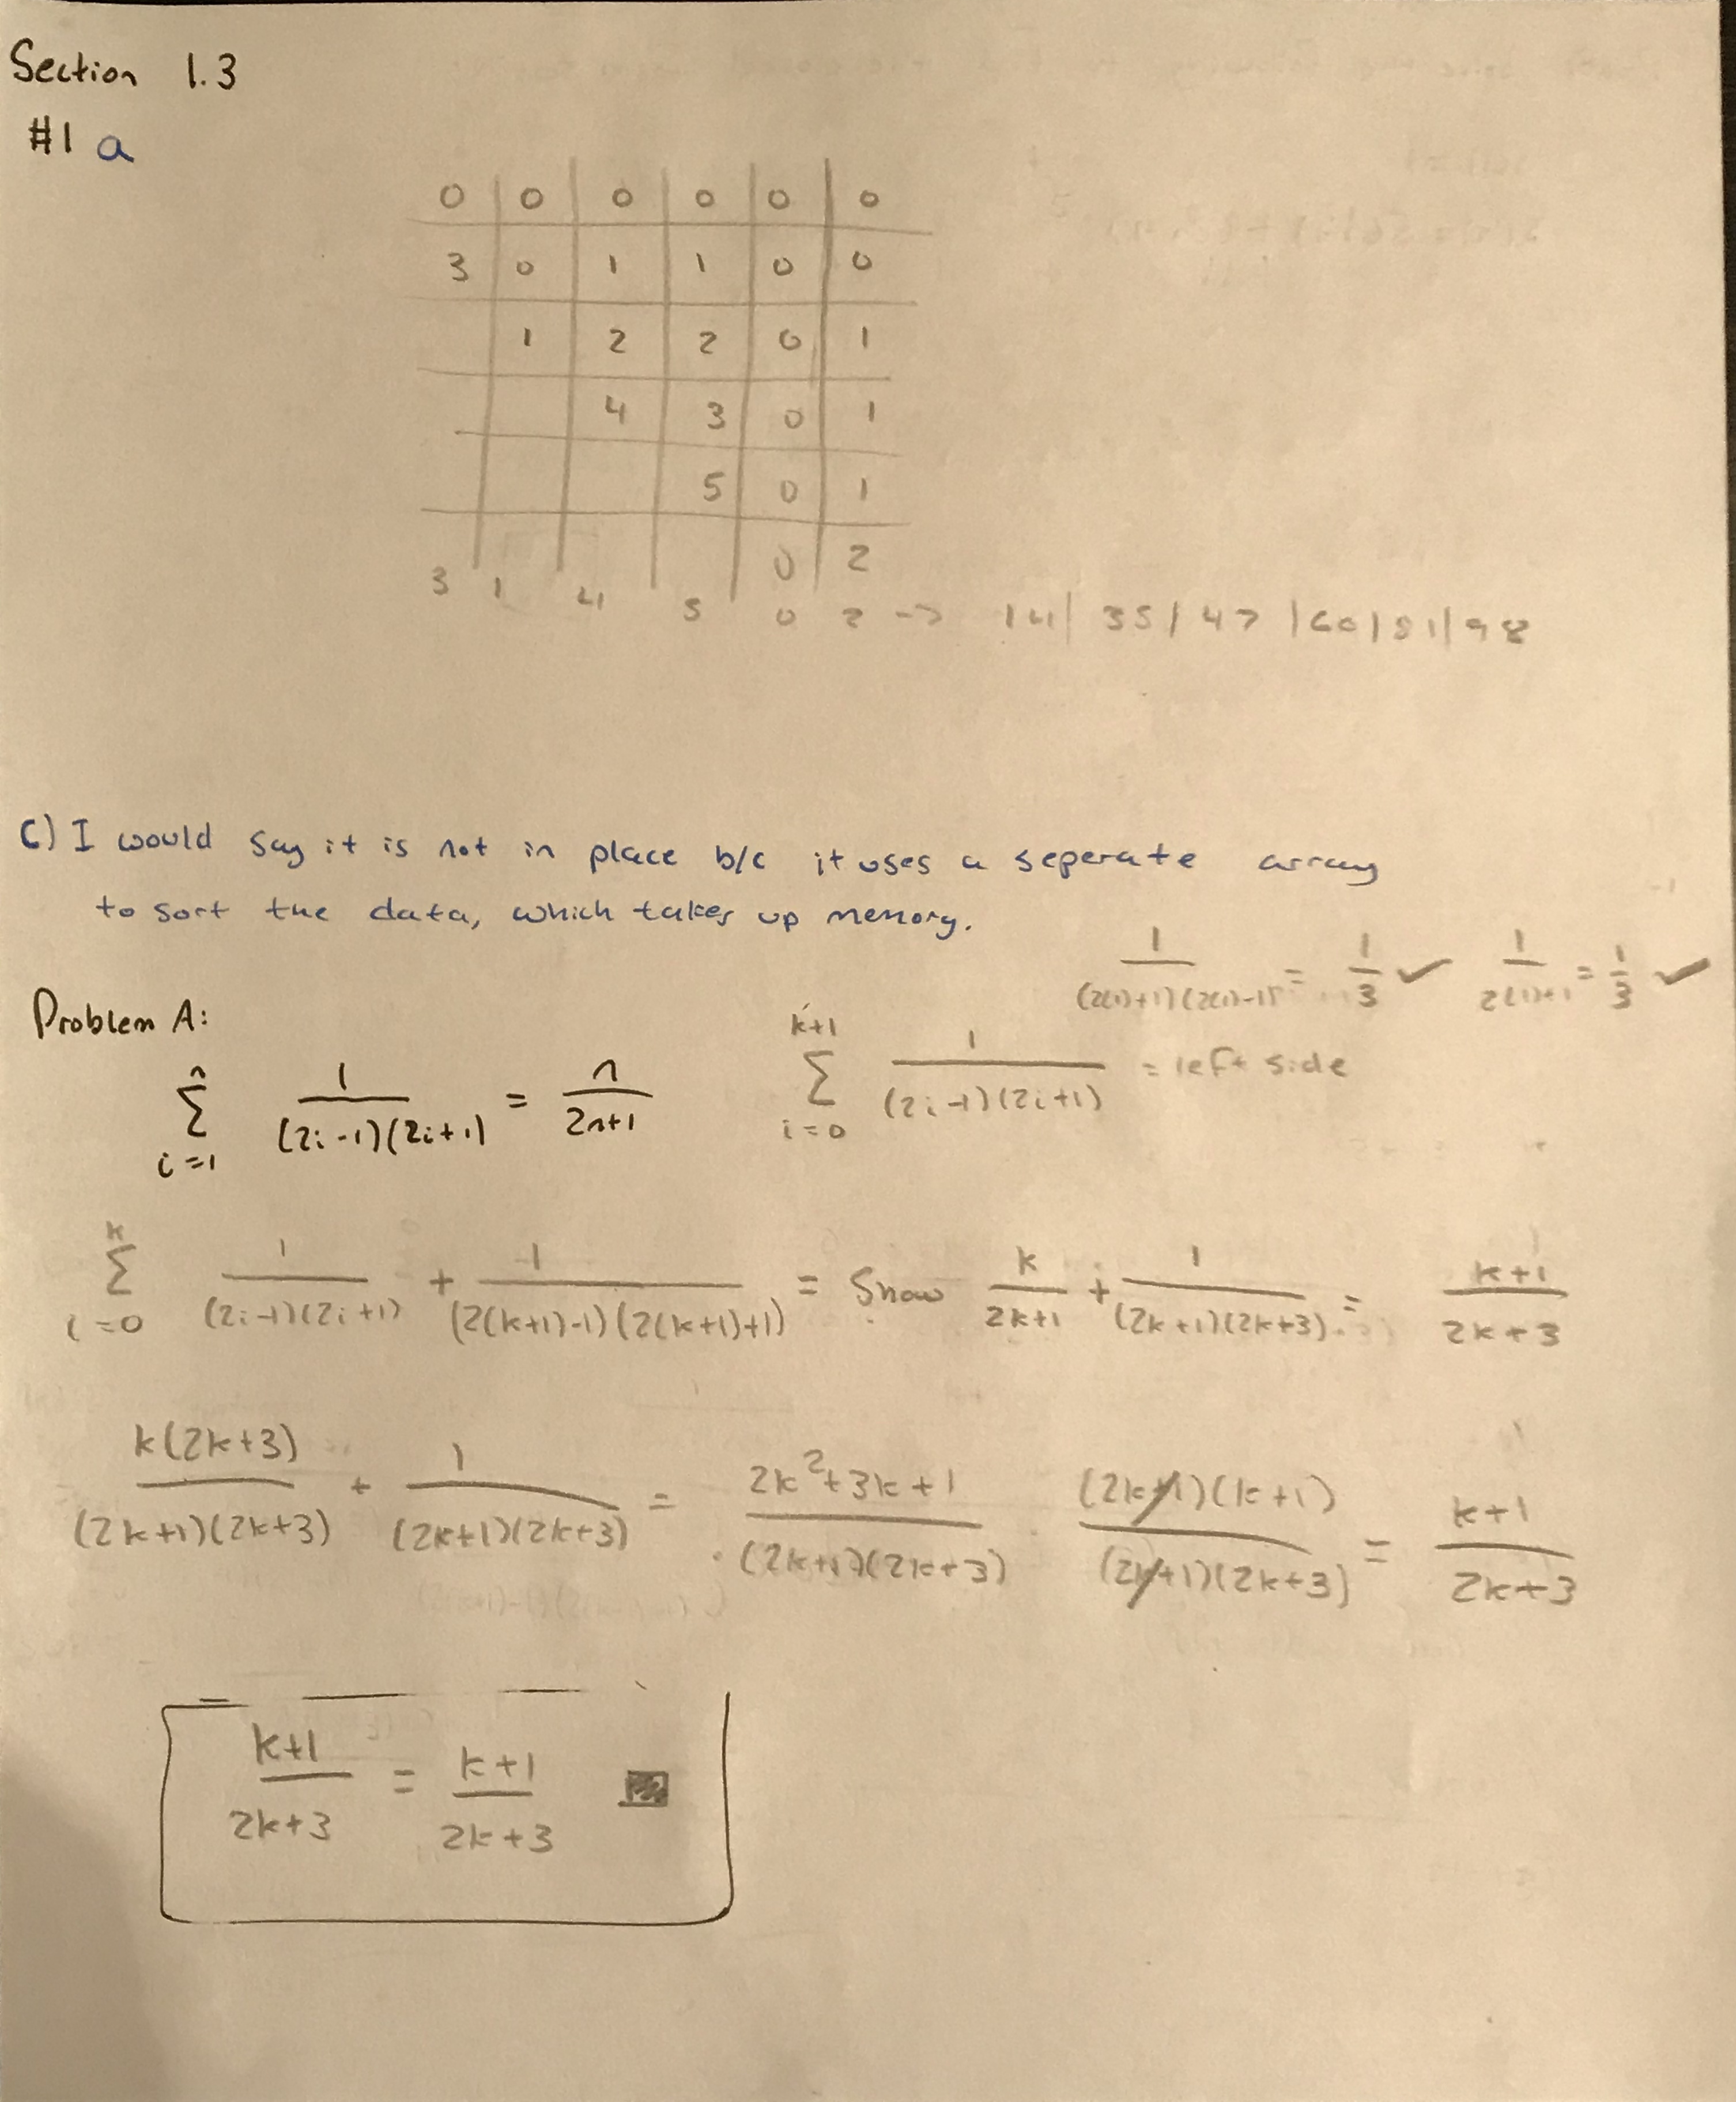 Section 1.3
#1 a
0 | 0 | 0 | 0 | 0 | 0
3 | 0 | 1 | 1 | 0 | 0
| 1 | 2 | 2 | 0 | 1
| | 4 | 3 | 0 | 1
| | | 5 | 0 | 1
| | | | 0 | 2
3 1 4 5 0 2 -> 14 | 35 | 47 | 60 | 81 | 98
C) I would say it is not in place b/c it uses a seperate array
to sort the data, which takes up memory.
1/((2(1)+1)(2(1)-1)) = 1/3 ✓ 1/(2(1)+1) = 1/3 ✓
Problem A:
∑_{i=1}^{n} 1/((2i-1)(2i+1)) = n/(2n+1)
∑_{i=0}^{k+1} 1/((2i-1)(2i+1)) = left side
∑_{i=0}^{k} 1/((2i-1)(2i+1)) + 1/((2(k+1)-1)(2(k+1)+1)) = Show k/(2k+1) + 1/((2k+1)(2k+3)) = (k+1)/(2k+3)
k(2k+3)/((2k+1)(2k+3)) + 1/((2k+1)(2k+3)) = (2k²+3k+1)/((2k+1)(2k+3)) (2k+1)(k+1)/((2k+1)(2k+3)) = (k+1)/(2k+3)
(k+1)/(2k+3) = (k+1)/(2k+3) ■